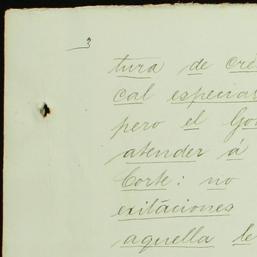 3
tura de cré
cal especias
pero el Go
atender á
Corte: no
exitáciones
aquella le